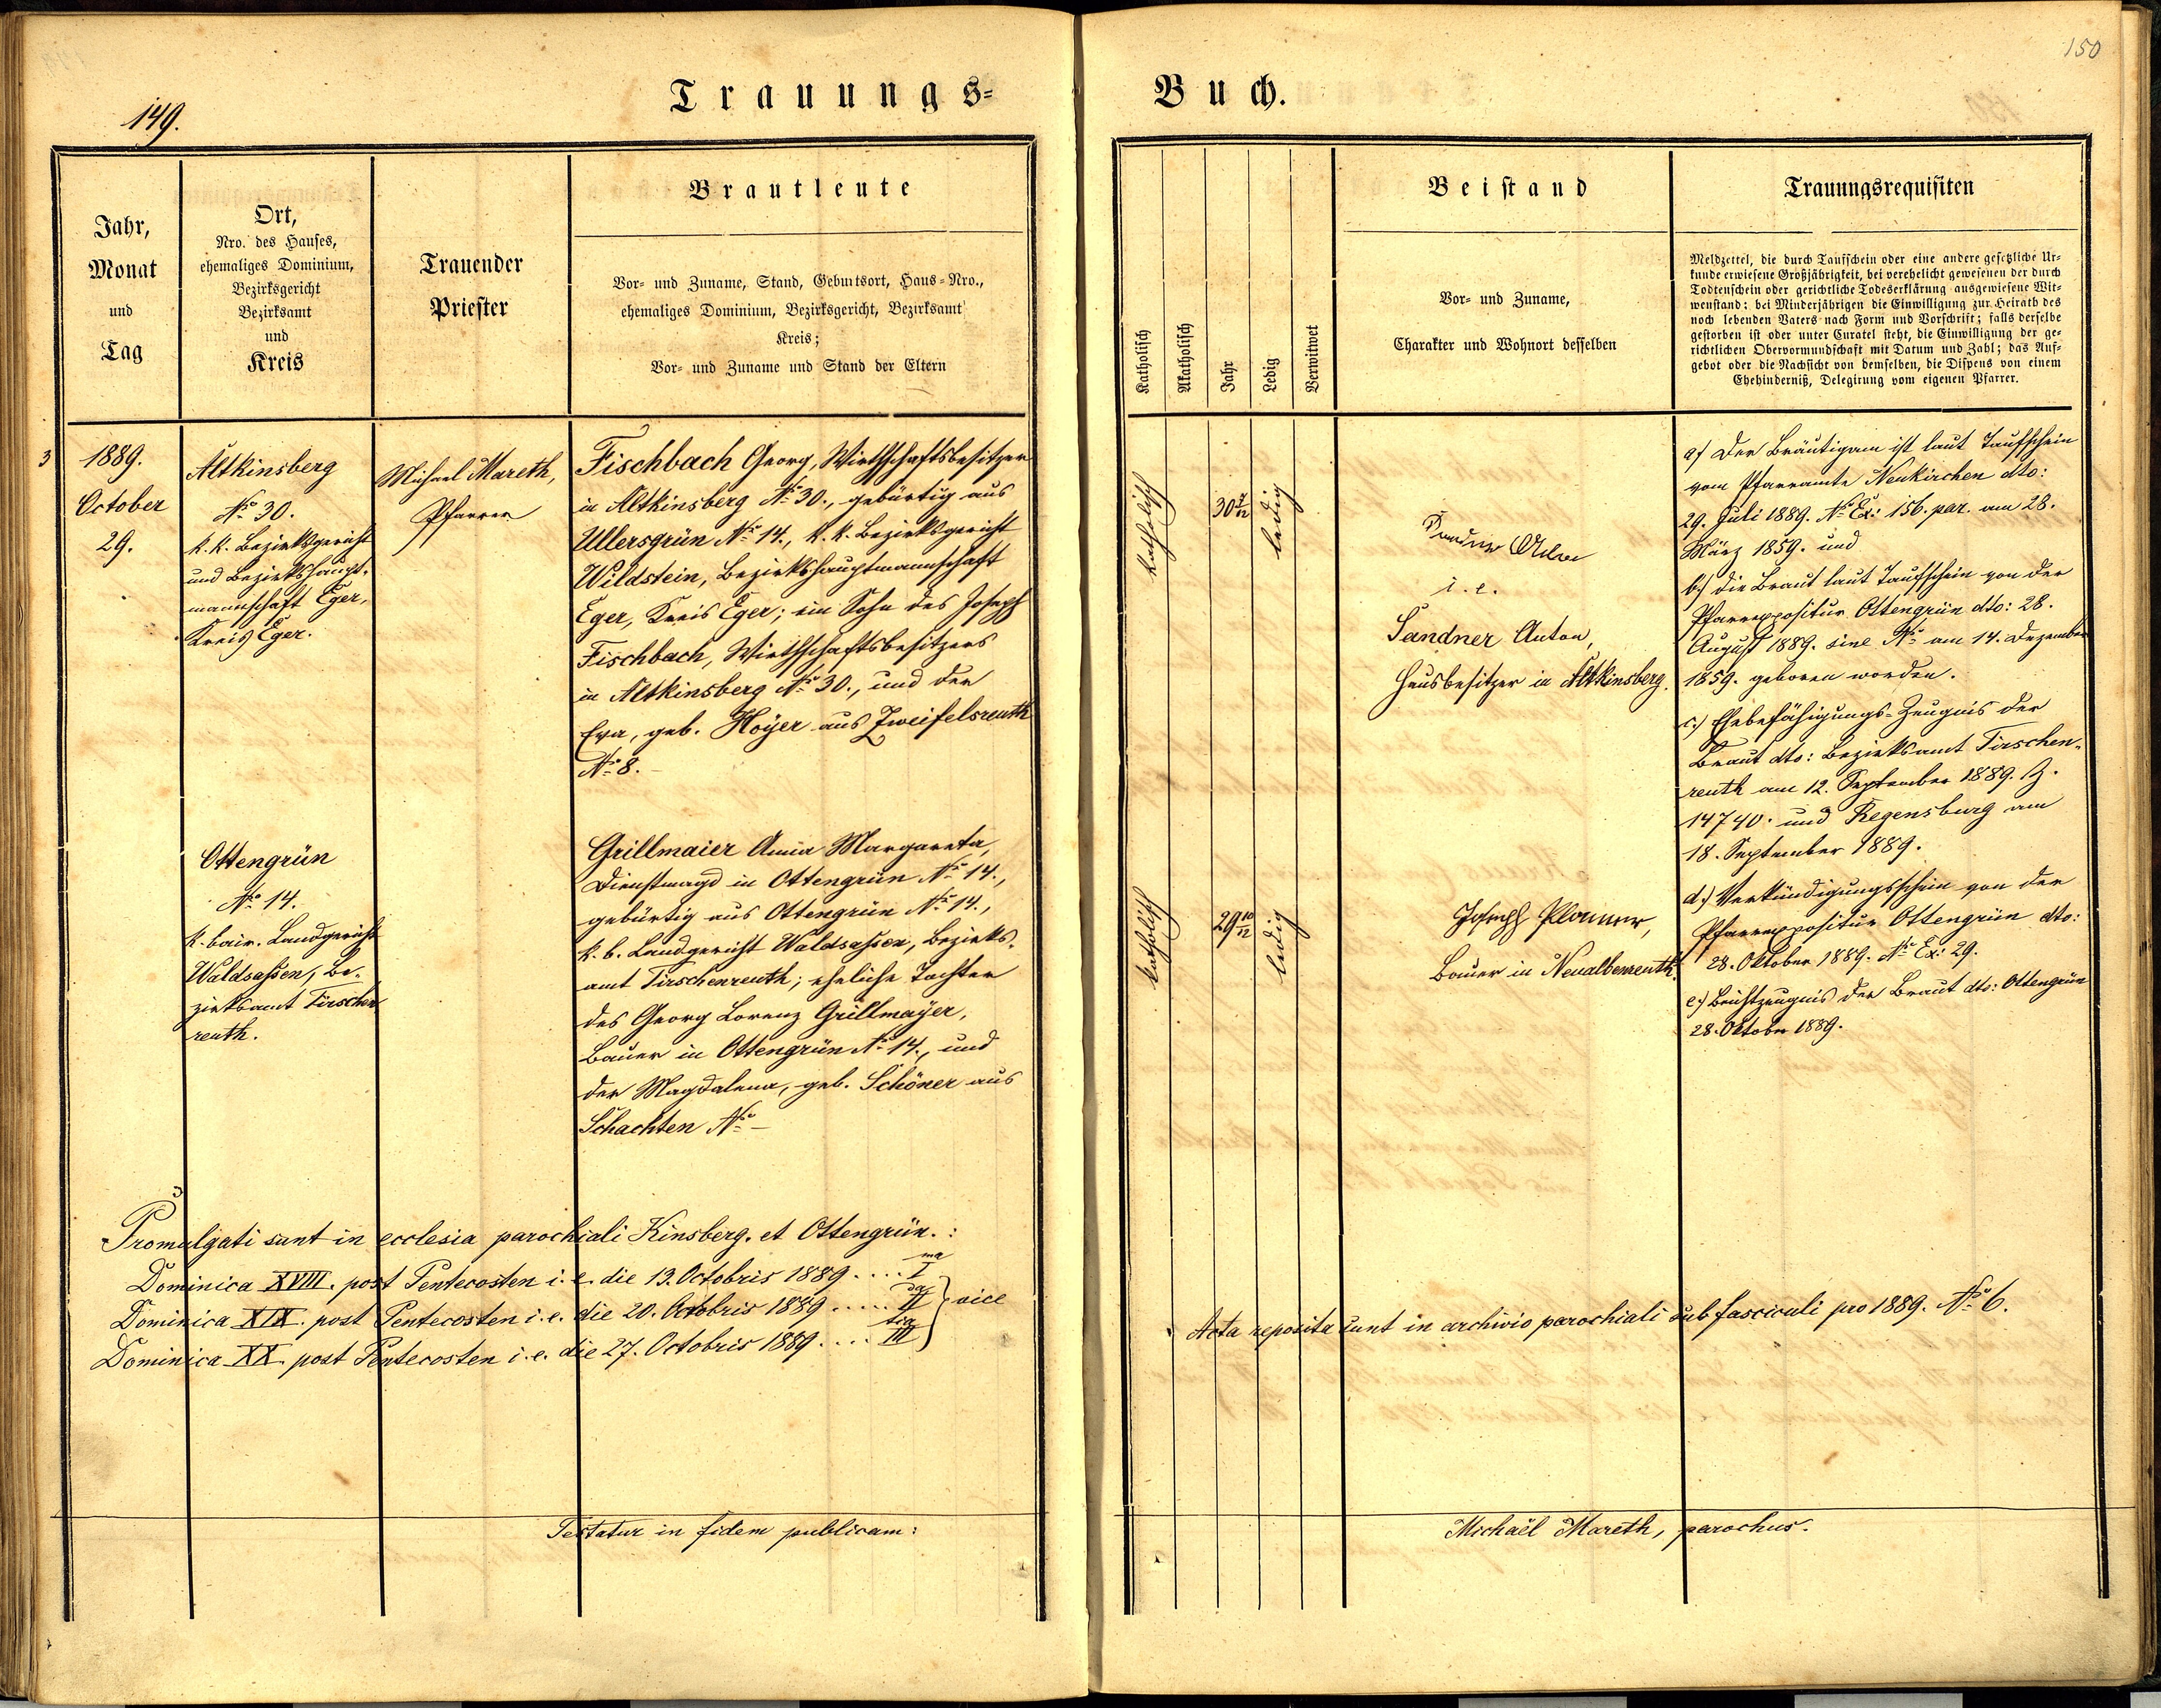 149.
Trauungs=
Jahr,
Monat
und
Tag
Ort,
Nro. des Hauses,
ehemaliges Dominium,
Bezirksgericht
Bezirksamt
und
Kreis
Trauender
Priester
Brautleute
Vor- und Zuname, Stand, Geburtsort, Haus-Nro.,
ehemaliges Dominium, Bezirksgericht, Bezirksamt
Kreis;
Vor- und Zuname und Stand der Eltern
3
1889.
October
29.
Altkinsberg
No 30.
k. k. Bezirksgericht
und Bezirkshaupt-
mannschaft Eger,
Kreis Eger.
Michael Mareth,
Pfarrer
Fischbach Georg, Wirthschaftsbesitzer
in Altkinsberg No 30., gebürtig aus
Ullersgrün No 14., k. k. Bezirksgericht
Wildstein, Bezirkshauptmannschaft
Eger, Kreis Eger; ein Sohn des Joseph
Fischbach, Wirthschaftsbesitzers
in Altkinsberg No 30., und der
Eva, geb. Hoÿer aus Zweifelsreuth
No 8.
Ottengrün
No 14.
k. bair. Landgericht
Waldsassen, Be-
zirksamt Tirschen
reuth.
Grillmaier Anna Margareta,
Dienstmagd in Ottengrün No 14.,
gebürtig aus Ottengrün No 14.,
k. b. Landgericht Waldsassen, Bezirks-
amt Tirschenreuth; eheliche Tochter
des Georg Lorenz Grillmaÿer,
Bauer in Ottengrün No 14., und
der Magdalena, geb. Schöner aus
Schachten No —
Promulgati sunt in ecclesia parochiali Kinsberg. et Ottengrün.:
Dominica XVIII. post Pentecosten i. e. die 13. Octobris 1889 .... I ma
Dominica XIX. post Pentecosten i. e. die 20. Octobris 1889 ..... II da } vice
Dominica XX. post Pentecosten i. e. die 27. Octobris 1889 .... III tia
Testatur in fidem publicam:
150
Buch.
Katholisch
Akatholisch
Jahr
Ledig
Verwitwet
Beistand
Vor- und Zuname,
Charakter und Wohnort desselben
Trauungsrequisiten
Meldzettel, die durch Taufschein oder eine andere gesetzliche Ur-
kunde erwiesene Großjährigkeit, bei verehelicht gewesenen der durch
Todtenschein oder gerichtliche Todeserklärung ausgewiesene Wit-
wenstand; bei Minderjährigen die Einwilligung zur Heirath des
noch lebenden Vaters nach Form und Vorschrift; falls derselbe
gestorben ist oder unter Curatel steht, die Einwilligung der ge-
richtlichen Obervormundschaft mit Datum und Zahl; das Auf-
gebot oder die Nachsicht von demselben, die Dispens von einem
Ehehinderniß, Delegirung vom eigenen Pfarrer.
katholisch
30 7/12
ledig
i. e.
Sandner Anton,
Hausbesitzer in Altkinsberg.
a) Der Bräutigam ist laut Taufschein
vom Pfarramte Neukirchen dto:
29. Juli 1889. No Ex: 156. par. am 28.
März 1859. und
b) die Braut laut Taufschein von der
Pfarrexpositur Ottengrün dto: 28.
August 1889. sine No am 14. Dezember
1859. geboren worden.
c.) Ehebefähigungs-Zeugnis der
Braut dto: Bezirksamt Tirschen-
reuth am 12. September 1889. Z.
14740. und Regensburg am
18. September 1889.
d.) Verkündigungsschein von der
Pfarrexpositur Ottengrün dto:
28. Oktober 1889. No Ex: 29.
e.) Beichtzeugnis der Braut dto: Ottengrün
28. Oktober 1889.
katholisch
29 10/12
ledig
Joseph Planner,
Bauer in Neualbenreuth.
Acta reposita sunt in archivio parochiali sub fasciculi pro 1889. No 6.
Michaël Mareth, parochus.